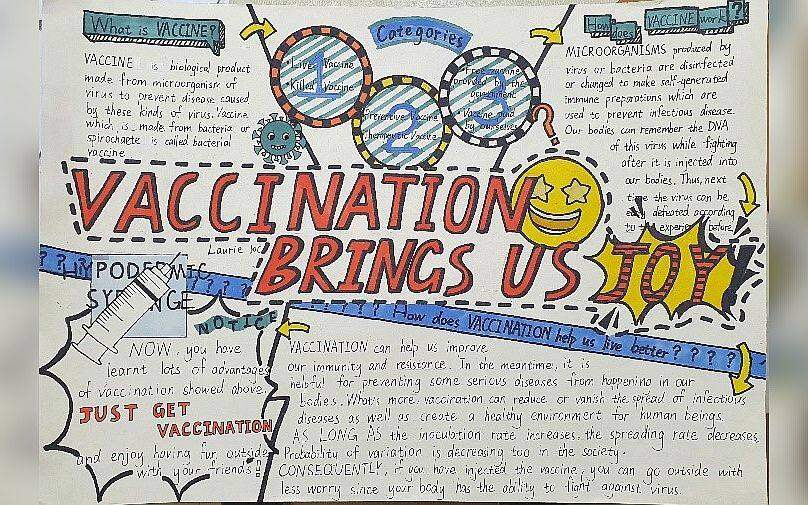 What is VACCINE?
VACCINE is biological product
made from microorganism of
virus to prevent disease caused
by these kinds of virus. Vaccine
which is made from bacteria or
spirochaete is called bacterial
vaccine
Categories
1
Live Vaccine
Killed Vaccine
2
Preventive Vaccine
Therapeutic Vaccine
3
Free vaccine
provided by the
government
Vaccine paid
by ourselves
?
How does VACCINE work?
MICROORGANISMS produced by
virus or bacteria are disinfected
or changed to make self-generated
immune preparations which are
used to prevent infectious disease.
Our bodies can remember the DNA
of this virus while fighting
after it is injected into
our bodies. Thus, next
time the virus can be
easily defeated according
to the experience before.
VACCINATION
BRINGS US JOY!
Laurie
HYPODERMIC
SYRINGE
? ? ? ?
NOTICE
NOW, you have
learnt lots of advantages
of vaccination showed above.
JUST GET
VACCINATION
and enjoy having fun outside
with your friends!!
? ? ? ? ? ? How does VACCINATION help us live better? ? ? ? ?
VACCINATION can help us improve
our immunity and resistance. In the meantime, it is
helpful for preventing some serious diseases from happening in our
bodies. What's more, vaccination can reduce or vanish the spread of infectious
diseases as well as create a healthy environment for human beings.
AS LONG AS the inoculation rate increases, the spreading rate decreases.
Probability of variation is decreasing too in the society.
CONSEQUENTLY, if you have injected the vaccine, you can go outside with
less worry since your body has the ability to fight against virus.